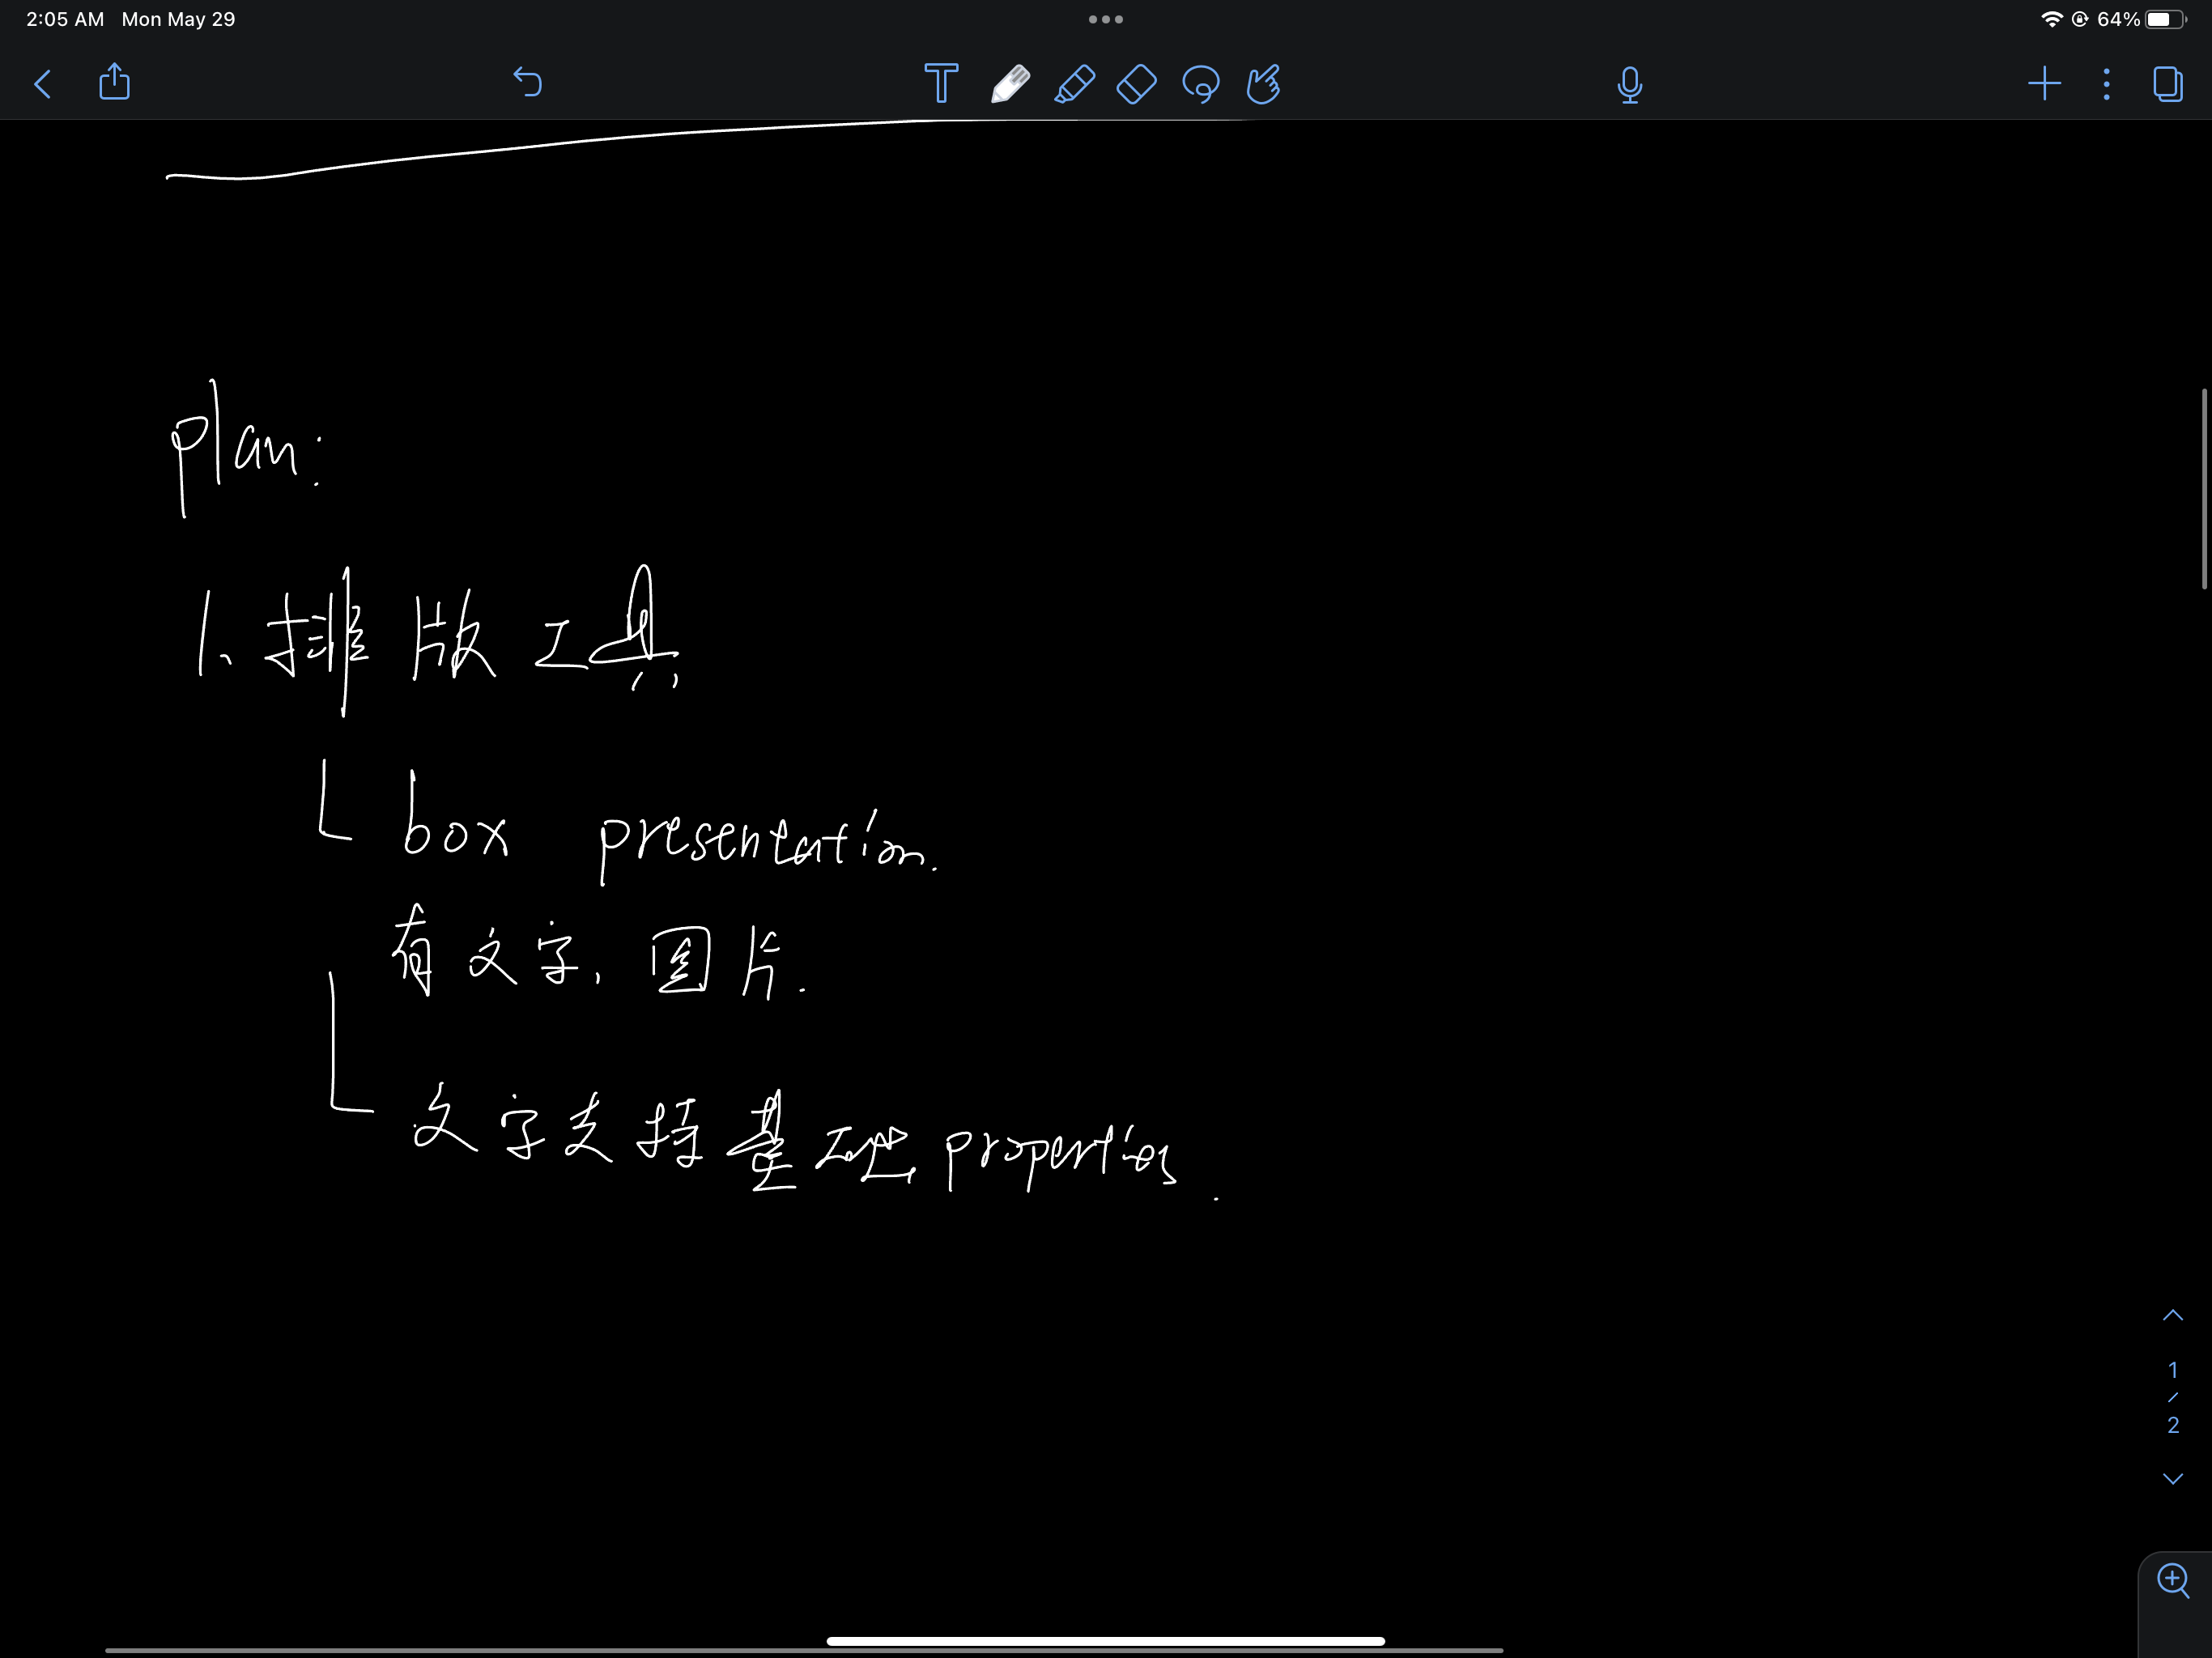 2:05 AM Mon May 29
64%
T
plan:
1、排版工具
box presentation.
有文字, 图片.
文字支持基础 properties.
1
/
2